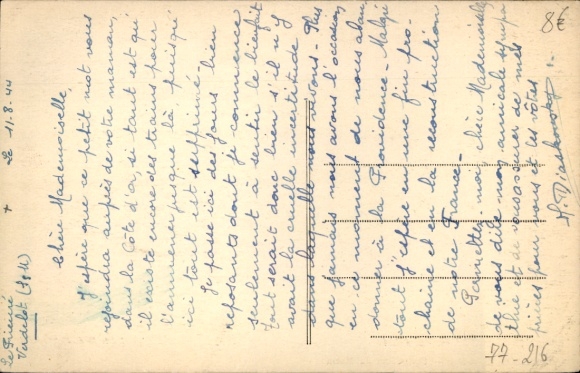 Le Prieuré
Verdelot (S & M)
+ Le 11.8.44
Chère Mademoiselle,
J'espère que ce petit mot vous
rejoindra auprès de votre maman,
dans la Côte d'Or, si tant est qu'
il existe encore des trains pour
l'amener jusque là puisqu'
ici tout est supprimé.
Je passe ici des jours bien
reposants dont je commence
seulement à sentir le bienfait
tout serait donc bien s'il n'y
avait la cruelle incertitude
dans laquelle nous vivons. Plus
que jamais nous avons l'occasion
en ce moment de nous aban
donner à la Providence. Malgré
tout j'espère en une fin pro-
chaine et en la reconstruction
de notre France.
Permettez moi, chère Mademoiselle
de vous dire mon amicale sympa
thie et de vous assurer de mes
prières pour vous et les vôtres
8€
77-216